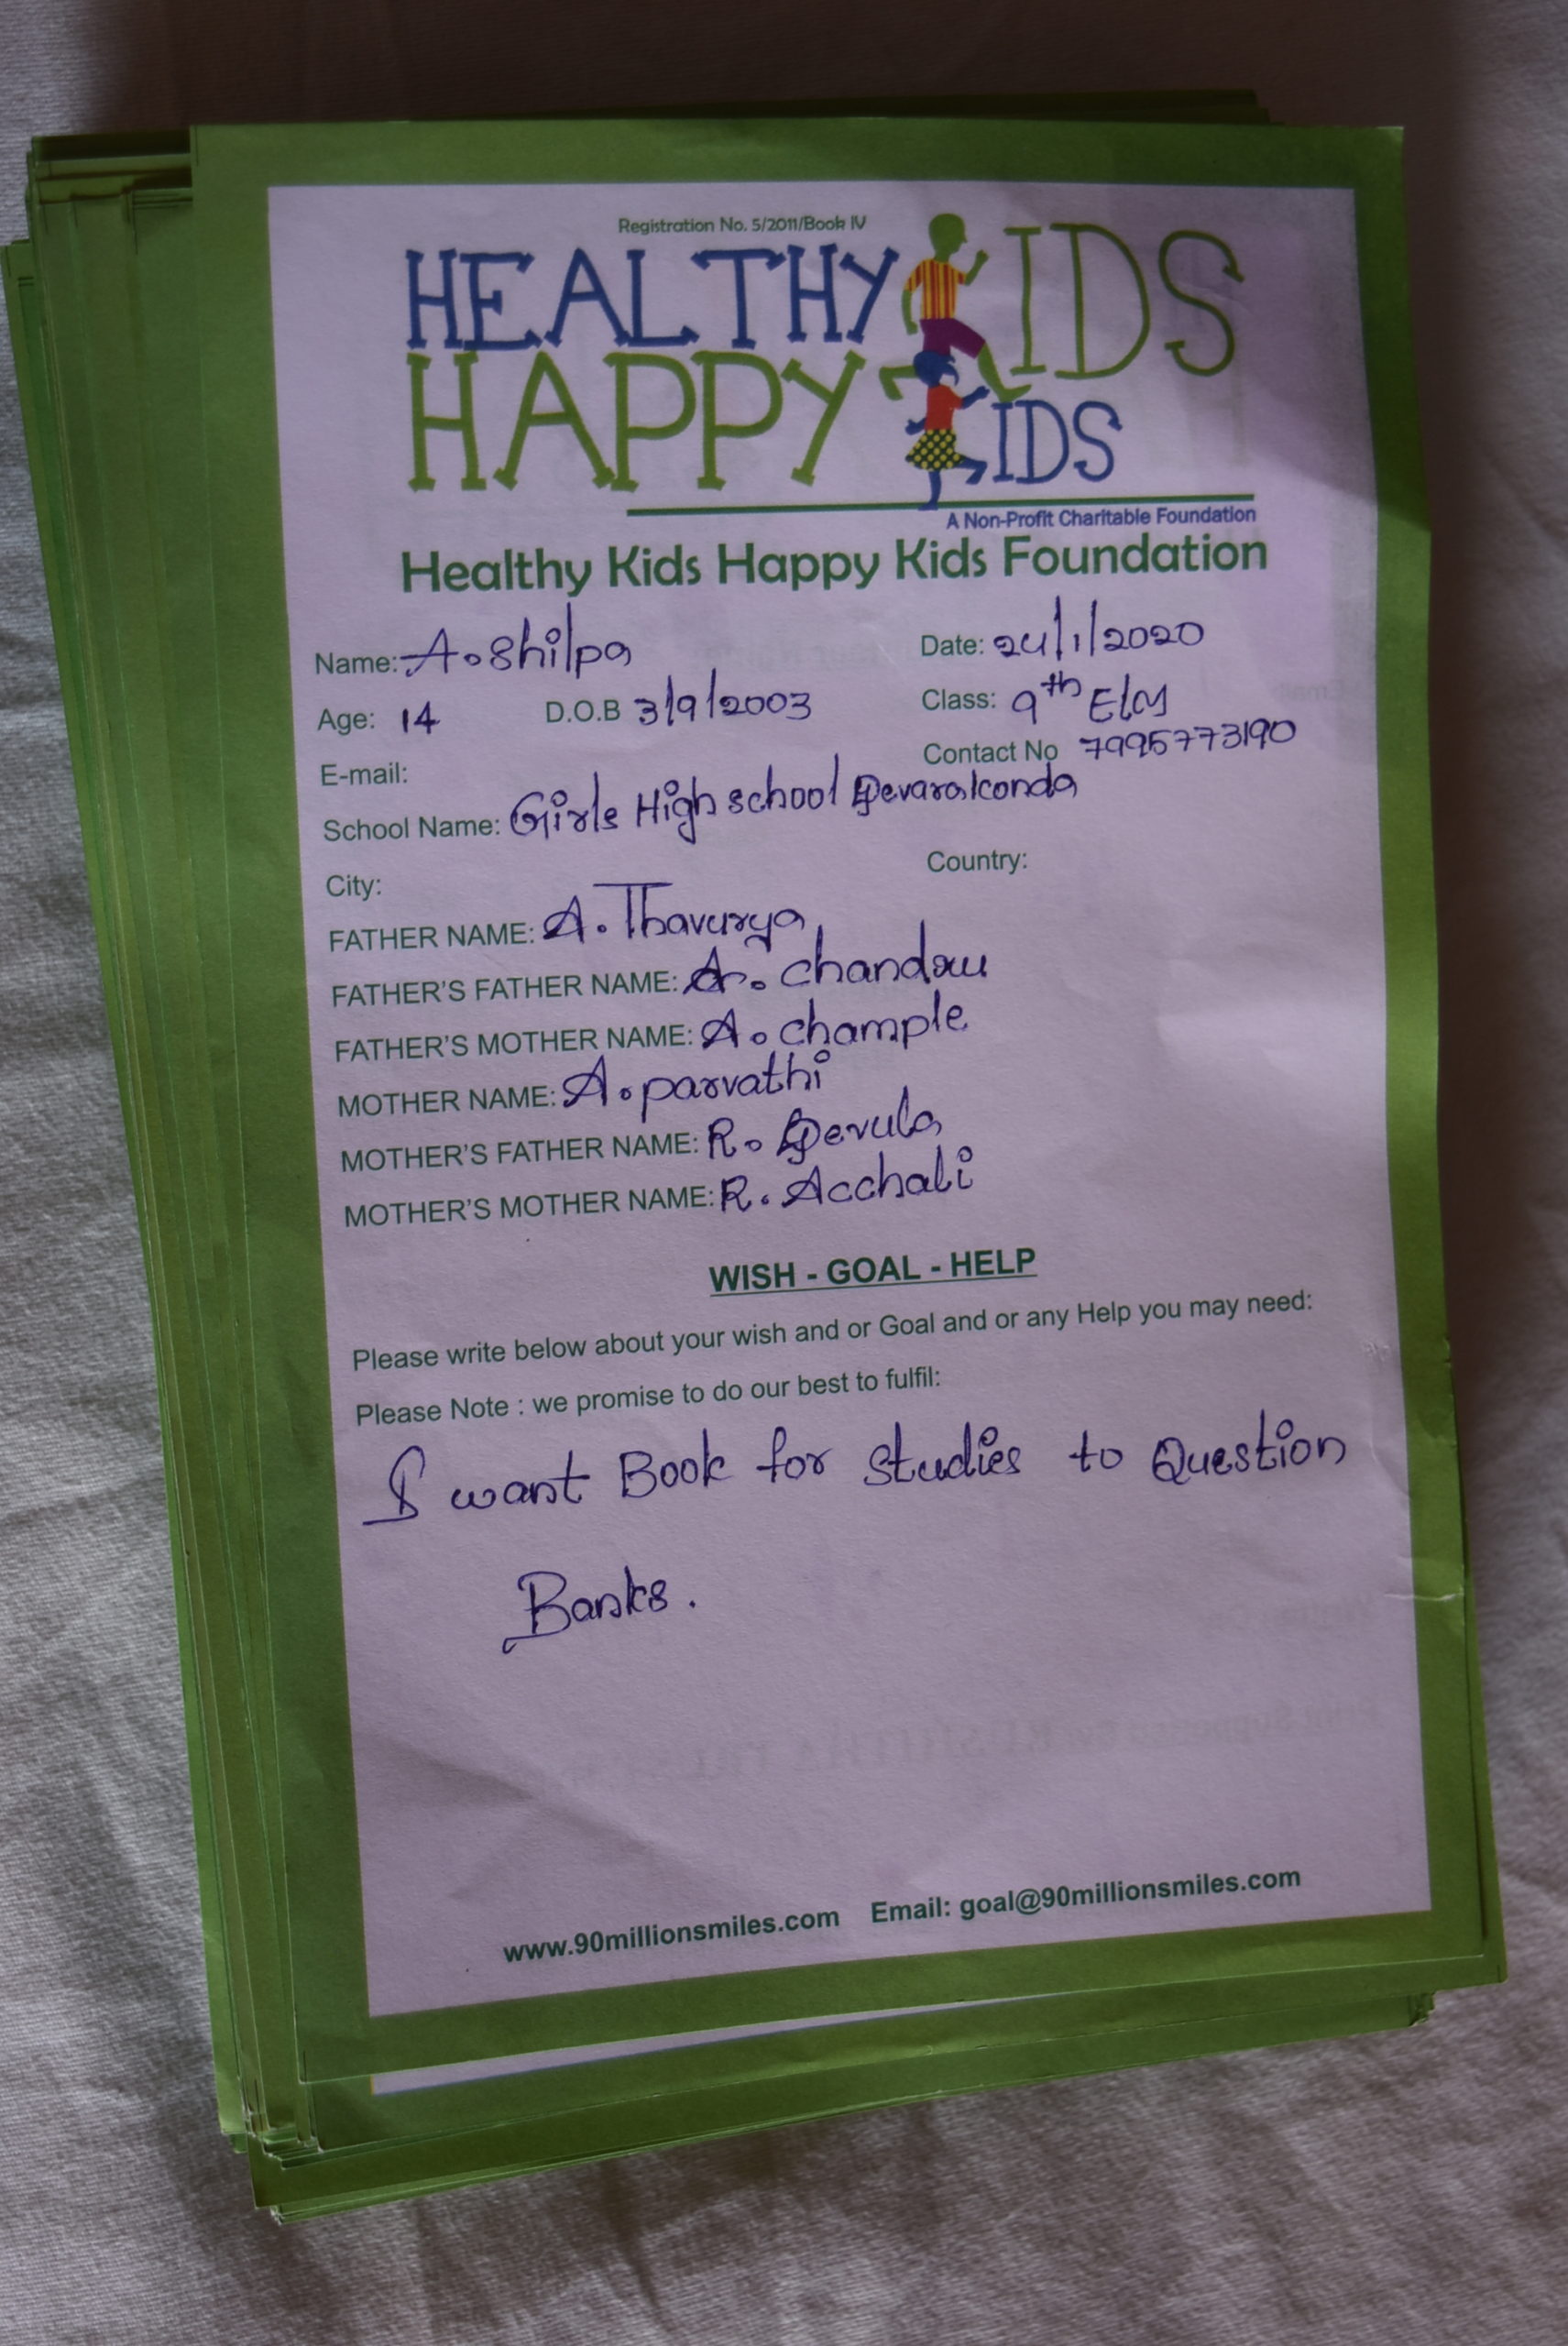 Registration No. 5/2011/Book IV
HEALTHY KIDS
HAPPY KIDS
A Non-Profit Charitable Foundation
Healthy Kids Happy Kids Foundation
Name: A. Shilpa Date: 24/1/2020
Age: 14 D.O.B 3/9/2003 Class: 9th E/M
E-mail: Contact No 7995773190
School Name: Girls High school Devarakonda
City: Country:
FATHER NAME: A. Thavurya
FATHER'S FATHER NAME: A. chandru
FATHER'S MOTHER NAME: A. chample
MOTHER NAME: A. parvathi
MOTHER'S FATHER NAME: R. Devula
MOTHER'S MOTHER NAME: R. Acchali
WISH - GOAL - HELP
Please write below about your wish and or Goal and or any Help you may need:
Please Note : we promise to do our best to fulfil:
I want Book for studies to Question
Banks.
www.90millionsmiles.com Email: goal@90millionsmiles.com